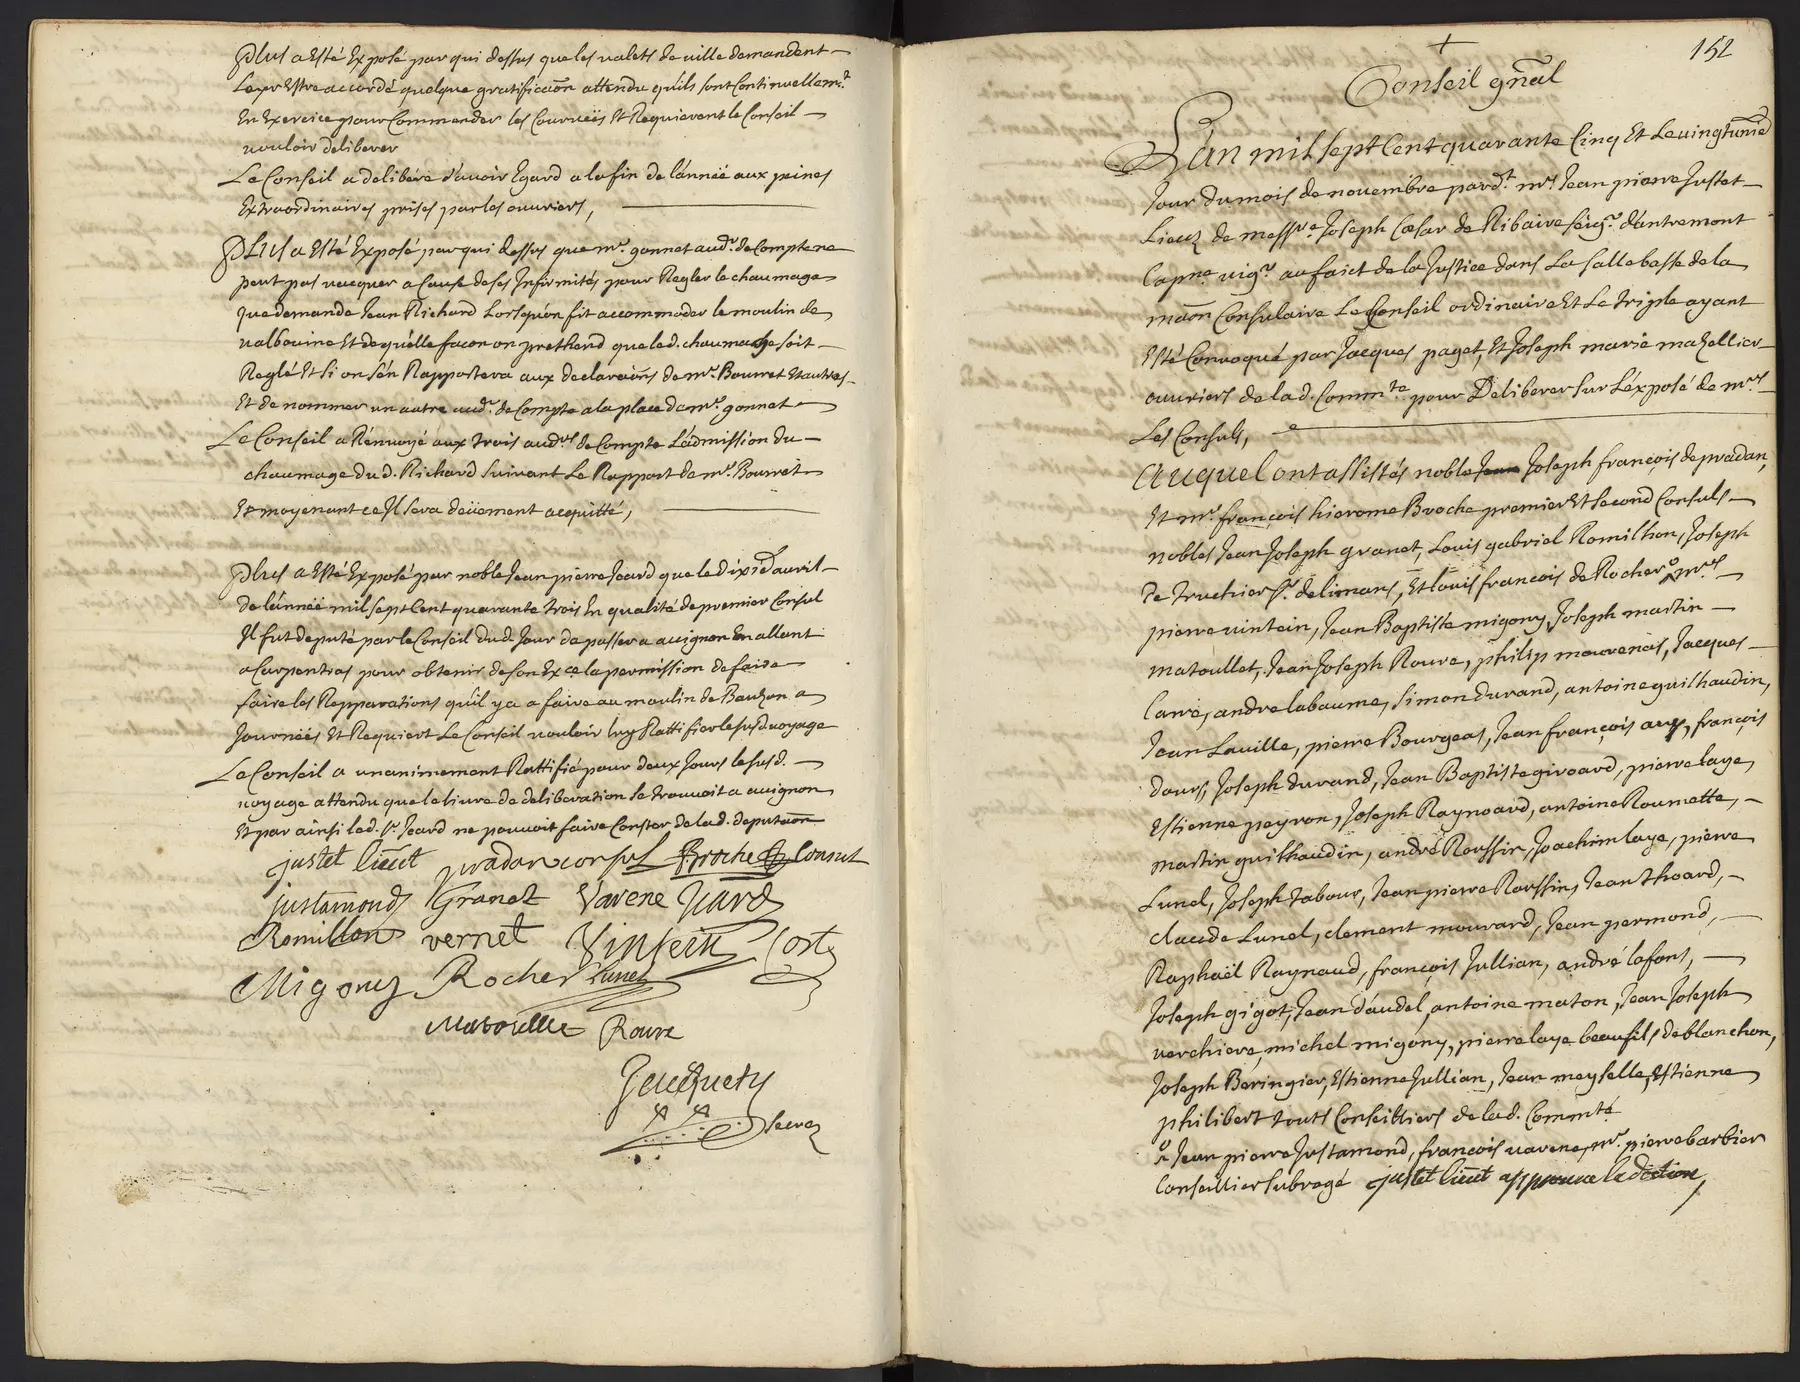 plus a Esté Exposé par qui dessus que les valets de ville demandent
Leur Estre accordé quelque gratificaôn attendu quils sont Continuellemt.
En Exercice pour Commander les Courvéés Et Requierent le Conseil
vouloir deliberer
Le Conseil a deliberé d'avoir Egard a la fin de l'année aux peines
Extraordinaires prises par les ouvriers,
PLus a Esté Exposé par qui dessus que mr. gonnet audr. de Compte ne
peut pas vacquer a Cause de ses Infirmités pour Regler le chaumage
que demande Jean Richard Lorsquón fit accommoder le moulin de
valbouine Et de quélle facon on prethend que led. chaumage soit
Reglé Et si on sén Rapportera aux declaraôns de mr. Bouvret Et autres
Et de nommer un autre audr. de Compte a la place de mr. gonnet
Le Conseil a Rénvoyé aux trois audrs. de Compte Ládmission du
chaumage dud. Richard suivant Le Rapport de mr. Bouvret
Et moyenant ce Il sera deüement acquitté,
plus a Esté Exposé par noble Jean pierre Jeard que le dixie. d'avril
de lánnéé mil sept Cent quarante trois En qualité de premier Consul
Il fut deputé par le Conseil dud. Jour de passer a avignon En allant
a Carpentras pour obtenir de son Exce. la permission de faire
faire les Repparations qu'il y a a faire au moulin de Bauzon a
Journéés Et Requiert Le Conseil vouloir luy Rattifier le susd. voyage
Le Conseil a unanimement Rattifié pour deux Jours le susd.
voyage attendu que le livre de deliberation se trouvoit a avignon
Et par ainsi led. sr. Jeard ne pouvoit faire Conster de lad. deputaôn
justet lieut pradan consul Broche Consul
justamond Granet Varene Jeard
Romillon vernet Vintein Coste
Migony Rocher Lunel
Matoullet Rouve
Jacquety
secre.
152
Conseil gñal
L'an mil sept Cent quarante Cinq Et Le vingt unie.
Jour du mois de novembre pardt. mr. Jean pierre Justet
Lieut. de messre. Joseph Cæsar de Ribaire seigr. d'antremont
Capne. vigr. au faict de la Justice dans La salle basse de la
maôn Consulaire Le Conseil ordinaire Et Le triple ayant
Esté Convoqué par Jacques paget, Et Joseph marie mazellier
ouvriers de lad. Commté. pour Déliberer sur Léxposé de mrs.
Les Consuls,
Auquel ont assistés noble Jean Joseph françois de pradan,
Et mr. françois hierome Broche premier Et second Consuls
nobles Jean Joseph granet, Louis gabriel Romilhon, Joseph
De truchier sr. de limans, Et louis francois de Rocher, mrs.
pierre vintein, Jean Baptiste migony, Joseph martin
matoullet, Jean Joseph Rouve, philip mourenas, Jacques
Carré, andre labaume, simon durand, antoine guilhaudin,
Jean Laville, pierre Bourgeas, Jean françois auy, françois
dours, Joseph durand, Jean Baptiste givoard, pierre laye
Estienne peyron, Joseph Raynoard, antoine Roumette,
martin guilhaudin, andré Roussin, Joachim laye, pierre
Lunel, Joseph tabour, Jean pierre Roussin, Jean thoard,
claude Lunel, clement mouvard, Jean permond,
Raphaël Raynaud, françois Jullian, andré lafont,
Joseph gigot, Jean daudel, antoine maton, Jean Joseph
verchiere, michel migony, pierre laye beaufils de blanchon,
Joseph Beringier, Estienne Jullian, Jean meyselle, Estienne
philibert touts Conseilliers de lad. Commté.
Jean pierre Justamond, françois varene, mr. pierre barbier
Conseillier subrogé justet lieut approuve ladiction,